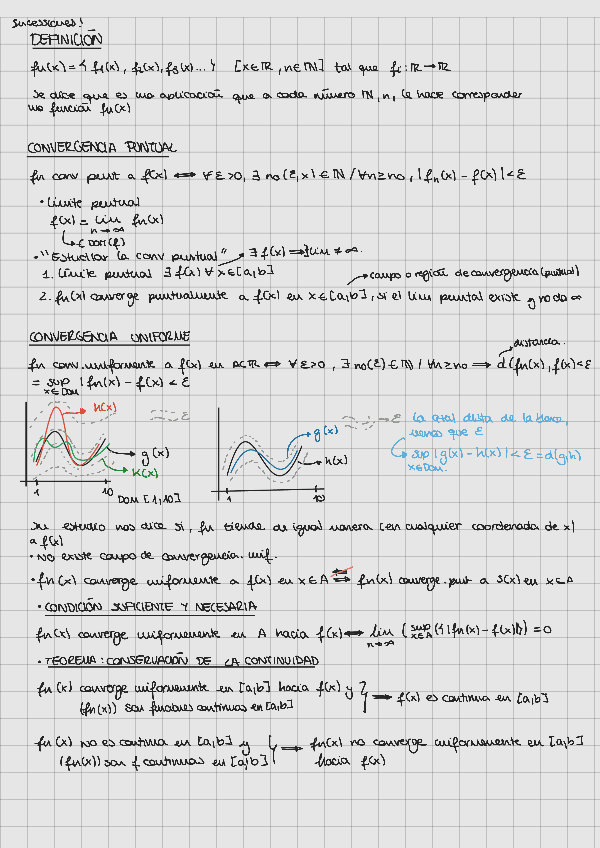 sucesiones!
DEFINICIÓN
fn(x) = { f1(x), f2(x), f3(x)... } [x∈ℝ, n∈ℕ] tal que fi: ℝ→ℝ
Se dice que es una aplicación que a cada número ℕ, n, le hace corresponder
una función fn(x)
CONVERGENCIA PUNTUAL
fn conv punt a f(x) ⟺ ∀ε>0, ∃ n0(ε,x) ∈ ℕ / ∀n≥n0, |fn(x) - f(x)| < ε
• Límite puntual
f(x) = lim n→∞ fn(x)
↳ C Dom(f)
• "Estudiar la conv puntual" → ∃ f(x) ⟹ ∃ lim ≠ ∞.
1. Límite puntual ∃ f(x) ∀ x∈[a,b]
→ campo o región de convergencia (puntual)
2. fn(x) converge puntualmente a f(x) en x∈[a,b], si el lim puntal existe y no da ∞
CONVERGENCIA UNIFORME
distancia.
fn conv. uniformente a f(x) en A⊂ℝ ⟺ ∀ε>0, ∃ n0(ε) ∈ ℕ / ∀n≥n0 ⟹ d(fn(x), f(x)) < ε
= sup x∈Dom |fn(x) - f(x)| < ε
h(x)
ε
g(x)
k(x)
1 10
Dom [1,10]
g(x)
h(x)
1 10
ε la dista de la
menos que ε
↳ sup x∈Dom. |g(x) - h(x)| < ε = d(g,h)
• su estudio nos dice si, fn tiende de igual manera (en cualquier coordenada de x)
a f(x)
• No existe campo de convergencia. unif.
• fn(x) converge uniformente a f(x) en x∈A ⟹ fn(x) converge. punt a f(x) en x∈A
• CONDICIÓN SUFICIENTE Y NECESARIA
fn(x) converge uniformenente en A hacia f(x) ⟺ lim n→∞ ( sup x∈A { |fn(x) - f(x)| }) = 0
• TEOREMA: CONSERVACIÓN DE LA CONTINUIDAD
fn(x) converge uniformemente en [a,b] hacia f(x) y
(fn(x)) son funciones continuas en [a,b] } ⟹ f(x) es continua en [a,b]
fn(x) no es continua en [a,b] y } ⟹ fn(x) no converge uniformemente en [a,b]
(fn(x)) son f continuas en [a,b] hacia f(x)